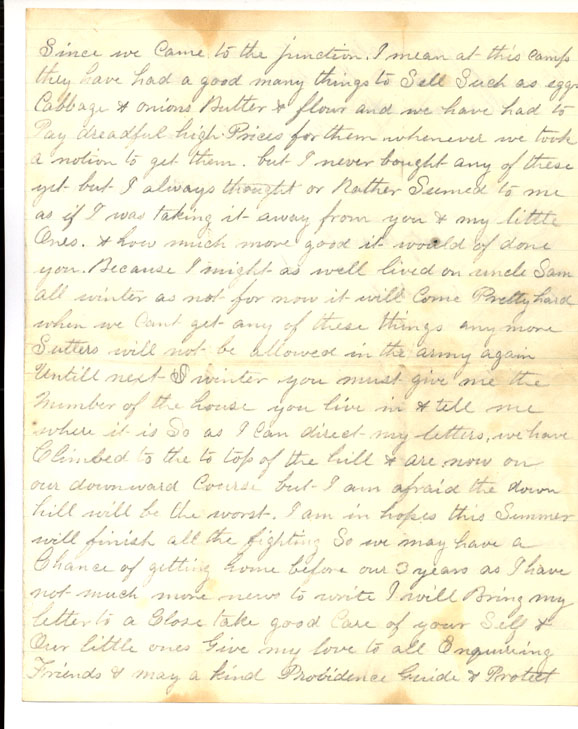 Since we Came to the junction. I mean at this camp
they have had a good many things to Sell Such as eggs
Cabbage & onions Butter & flour and we have had to
Pay dreadful high Prices for them whenever we took
a notion to get them. but I never bought any of these
yet but I always thought or Rather Seemed to me
as if I was taking it away from you & my little
Ones. & how much more good it would of done
you. Because I might as well lived on uncle Sam
all winter as not for now it will Come Pretty hard
when we Cant get any of these things any more
Sutters will not be allowed in the army again
Untill next winter you must give me the
Number of the house you live in & tell me
where it is So as I Can direct my letters, we have
Climbed to the to top of the hill & are now on
our downward Course but I am afraid the down
hill will be the worst. I am in hopes this Summer
will finish all the fighting So we may have a
Chance of getting home before our 3 years as I have
not much more news to write I will Bring my
letter to a Close take good Care of your Self &
Our little ones Give my love to all Enquiring
Friends & may a kind Providence Guide & Protect